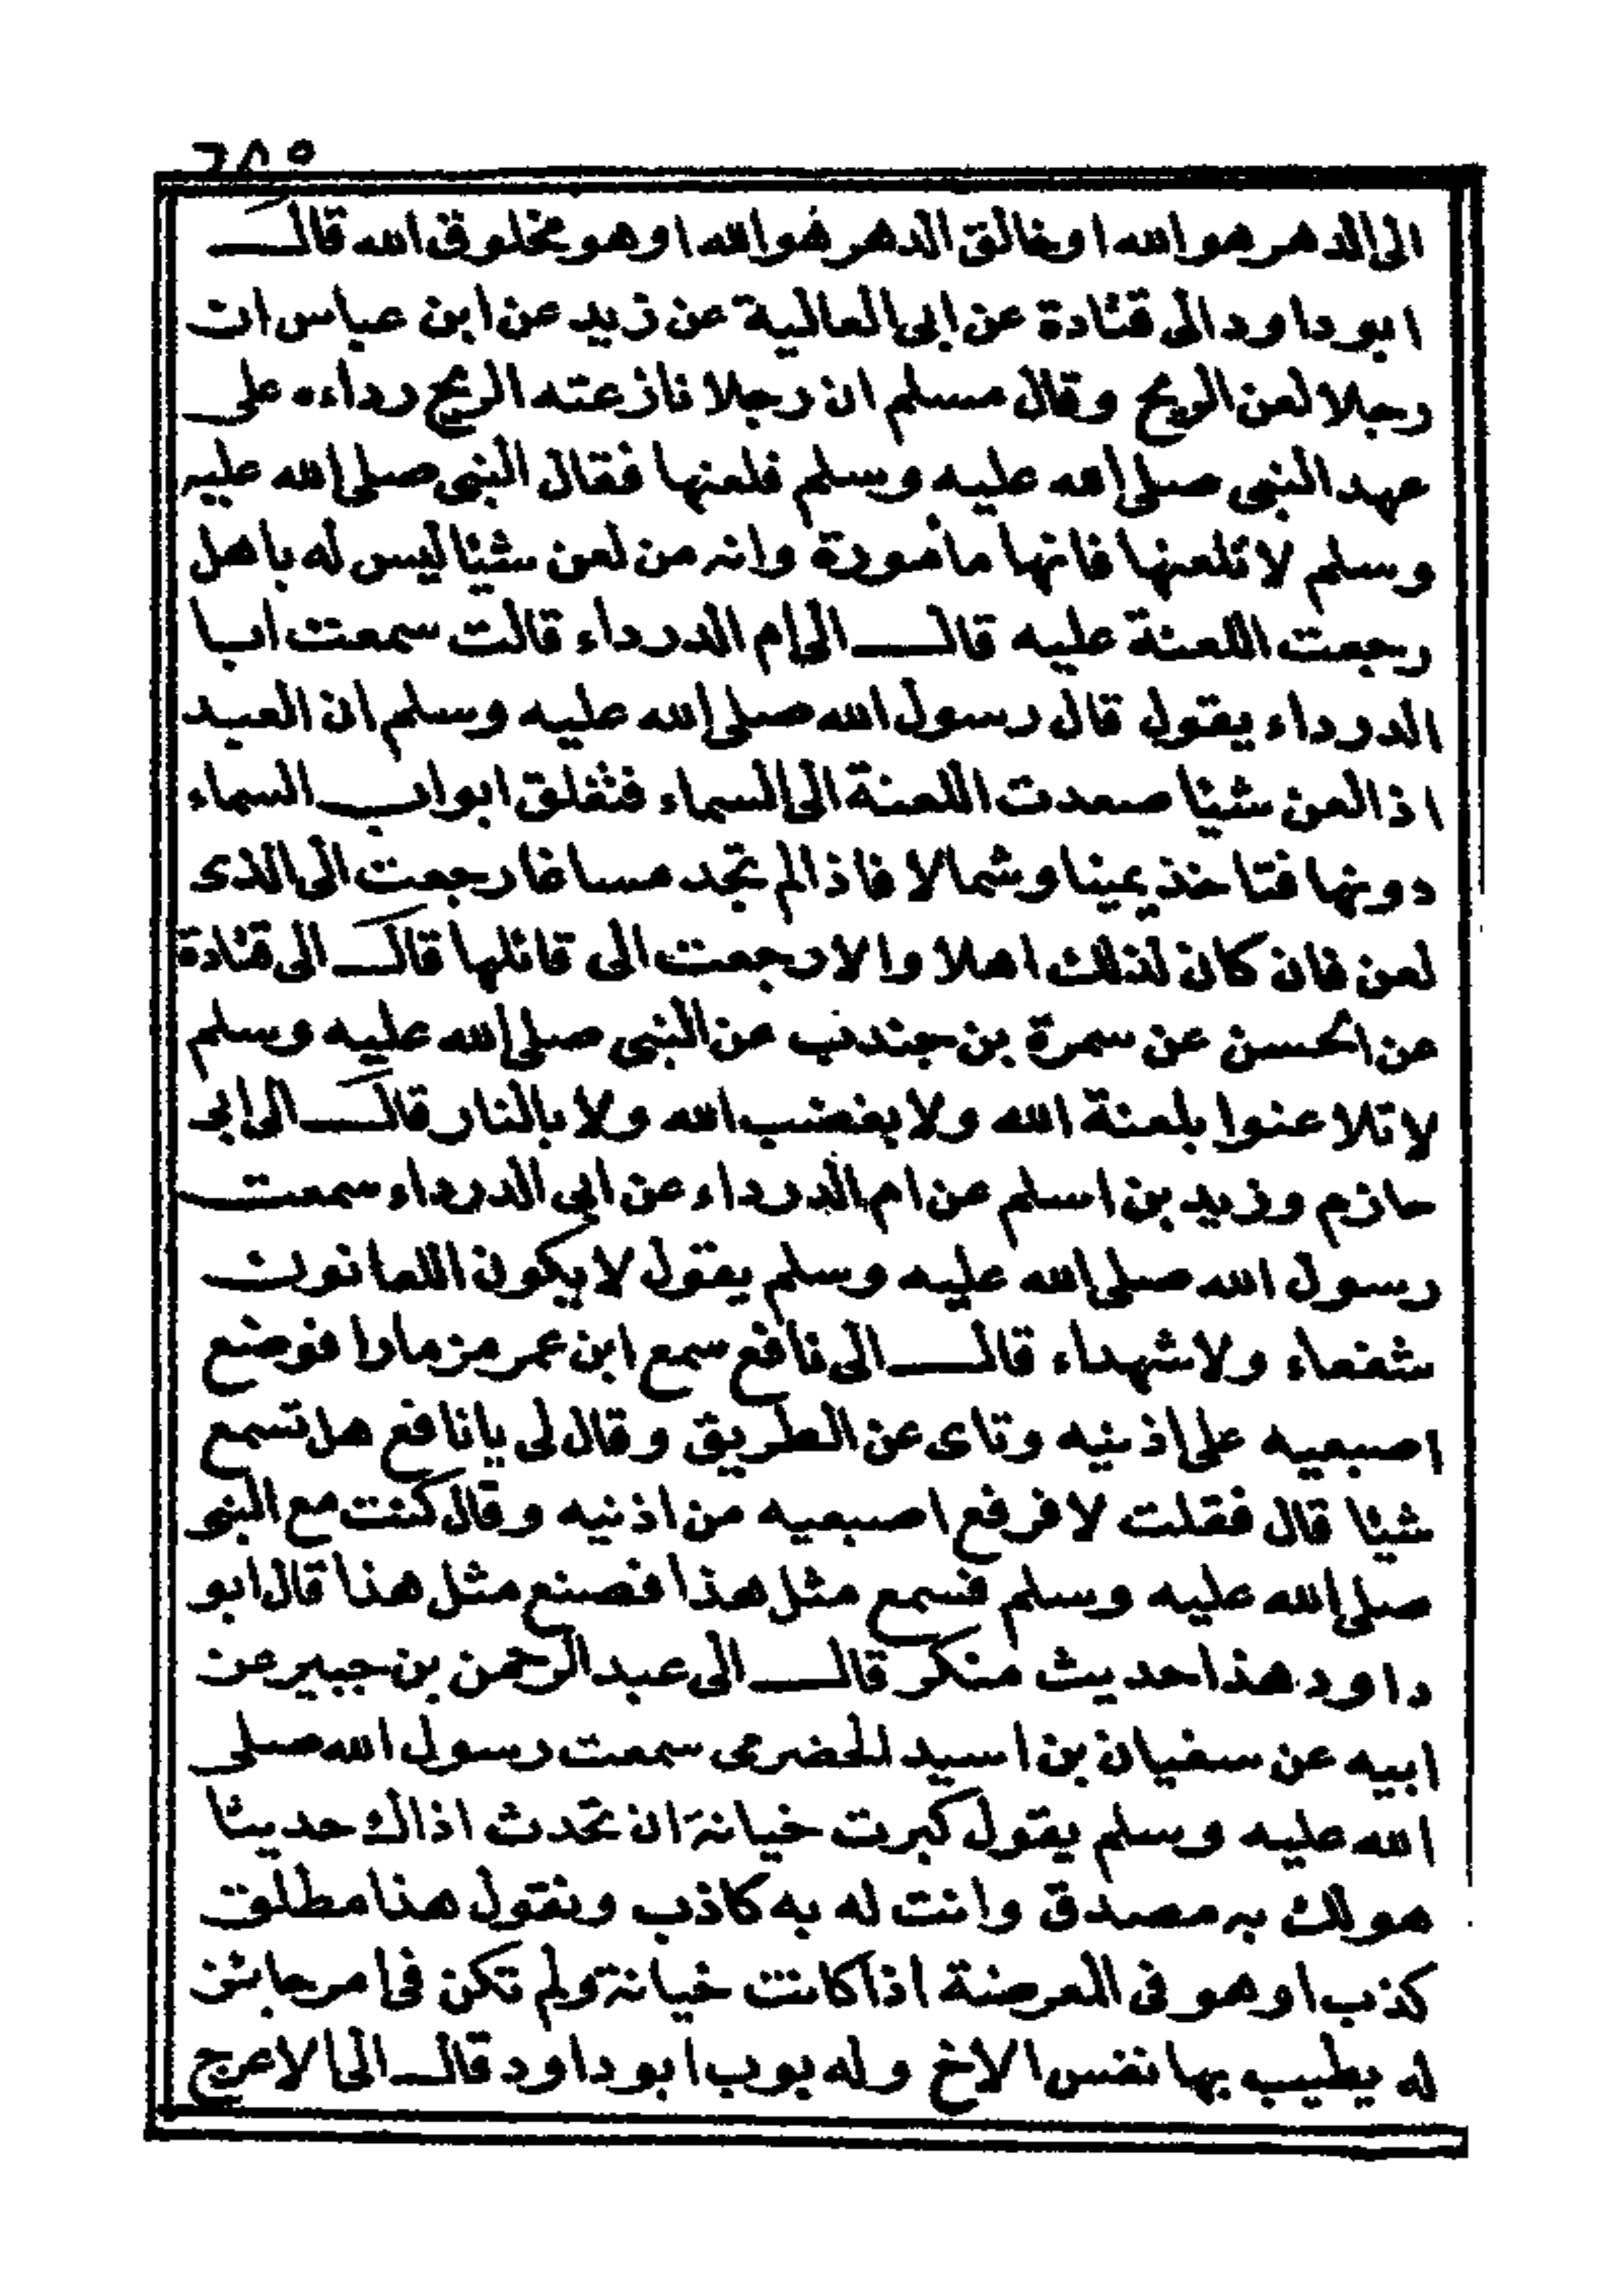 ٢٨٥
الى الدهر هو الله او خالق الدهر هو الله او هو مخلوق الله قال
ابو داود الى قتادة عن ابى العالية عن زيد عن ابن عباس ان
رجلا لعن الريح وقال مسلم ان رجلا نازعته الريح رداءه على
عهد النبى صلى الله عليه وسلم فلعنها فقال النبى صلى الله عليه
وسلم لا تلعنها فانها مأمورة وانه من لعن شيئا ليس له باهل
رجعت اللعنة عليه قال الى ام الدرداء قالت سمعت ابا
الدرداء يقول قال رسول الله صلى الله عليه وسلم ان العبد
اذا لعن شيئا صعدت اللعنة الى السماء فتغلق ابواب السماء
دونها فتاخذ يمينا وشمالا فاذا لم تجد مساغا رجعت الى الذى
لعن فان كان لذلك اهلا والا رجعت الى قائلها قال الى قتادة
عن الحسن عن سمرة بن جندب عن النبى صلى الله عليه وسلم
لا تلاعنوا بلعنة الله ولا بغضب الله ولا بالنار قال الى ابى
حازم وزيد بن اسلم عن ام الدرداء عن ابى الدرداء سمعت
رسول الله صلى الله عليه وسلم يقول لا يكون اللعانون
شفعاء ولا شهداء قال الى نافع سمع ابن عمر مزمارا فوضع
اصبعيه على اذنيه وناى عن الطريق وقال لى يا نافع هل تسمع
شيئا قال فقلت لا فرفع اصبعيه من اذنيه وقال كنت مع النبى
صلى الله عليه وسلم فسمع مثل هذا فصنع مثل هذا قال ابو
داود هذا حديث منكر قال الى عبد الرحمن بن جبير عن
ابيه عن سفيان بن اسيد الحضرمى سمعت رسول الله صلى
الله عليه وسلم يقول كبرت خيانة ان تحدث اخاك حديثا
هو لك به مصدق وانت له به كاذب ونقول هذا مطلق
كذب او هو فى المعرضة اذا كانت خيانة ولم تكن فى امر جائز
له يطيب بها نفس الاخ وله بوب ابو داود قال الى الاعرج